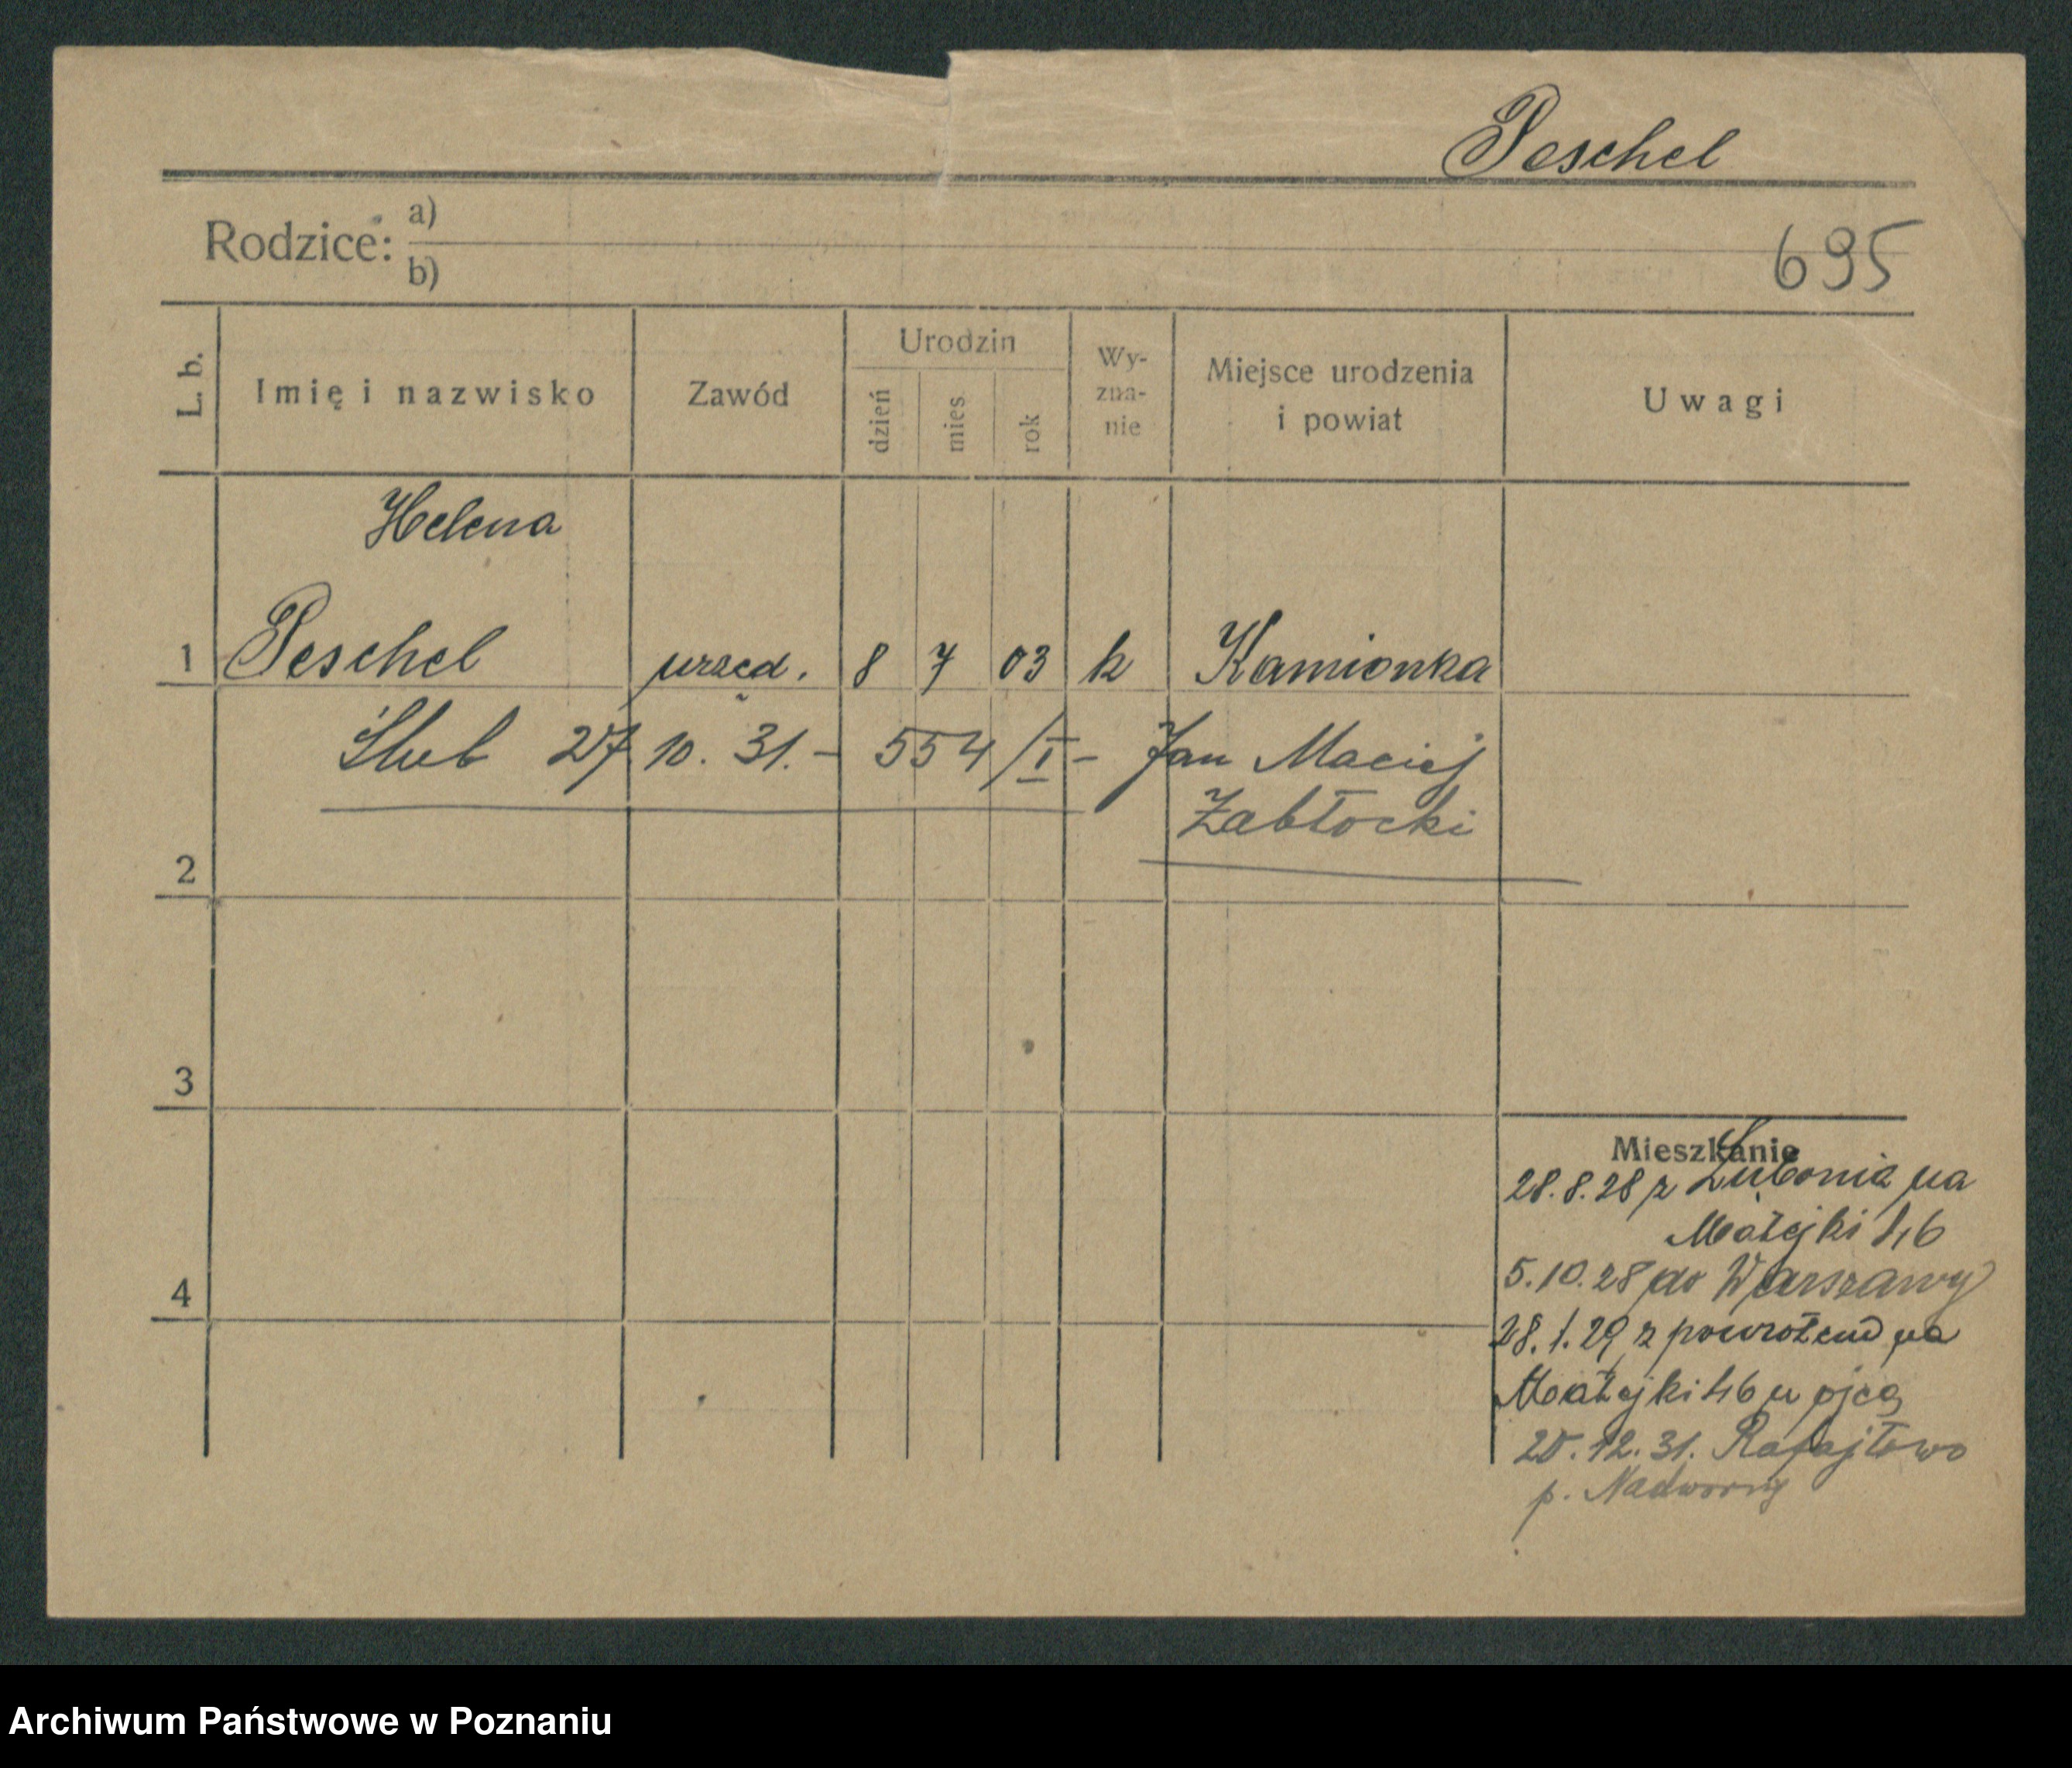 Peschel
Rodzice: a)
b)
695
L. b. Imię i nazwisko Zawód Urodzin dzień mies rok Wy-zna-nie Miejsce urodzenia i powiat Uwagi
Helena
1 Peschel urzęd. 8 7 03 k Kamionka
Ślub 27 10. 31. – 554/I – Jan Maciej
Zabłocki
2
3
Mieszkanie
28.8.28 z Lubonia na
Matejki 46
4
5.10.28 do Warszawy
28.1.29 z powrotem na
Matejki 46 u ojca
12. 31. Rafajłowo
p. Nadworny
Archiwum Państwowe w Poznaniu